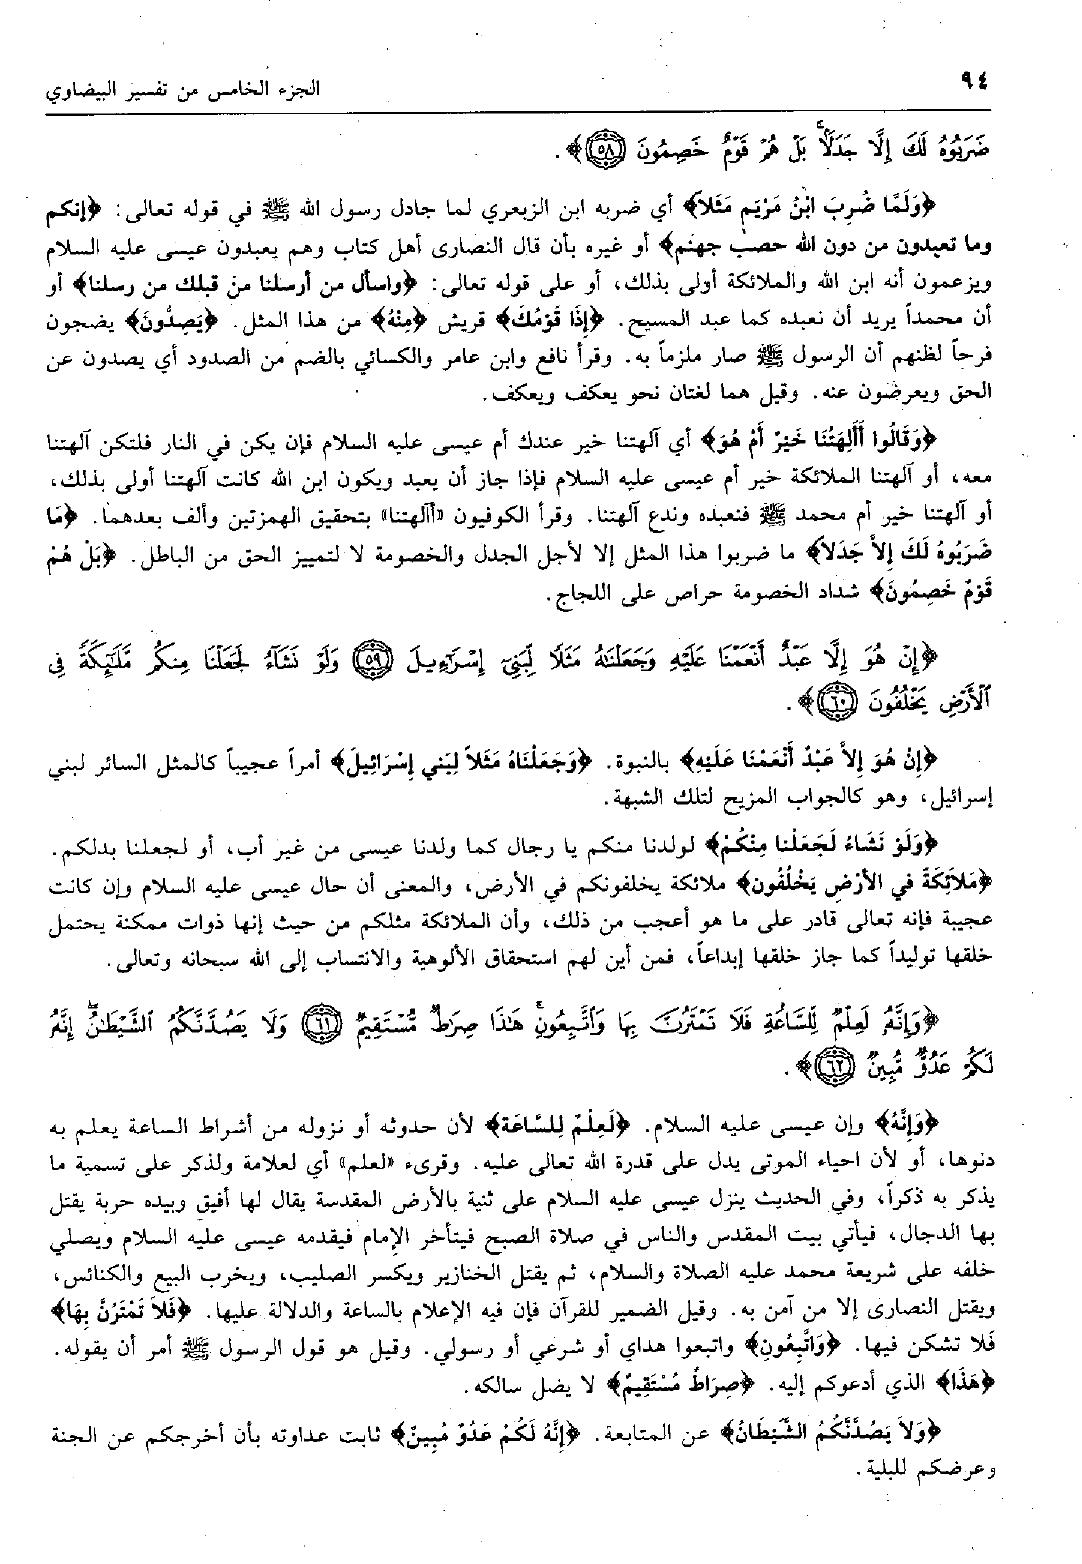 ٩٤
الجزء الخامس من تفسير البيضاوي
ضَرَبُوهُ لَكَ إِلَّا جَدَلًا بَلْ هُمْ قَوْمٌ خَصِمُونَ ﴿٥٨﴾﴾.
﴿وَلَمَّا ضُرِبَ ابْنُ مَرْيَمَ مَثَلاً﴾ أي ضربه ابن الزبعري لما جادل رسول الله ﷺ في قوله تعالى: ﴿إنكم
وما تعبدون من دون الله حصب جهنم﴾ أو غيره بأن قال النصارى أهل كتاب وهم يعبدون عيسى عليه السلام
ويزعمون أنه ابن الله والملائكة أولى بذلك، أو على قوله تعالى: ﴿واسأل من أرسلنا من قبلك من رسلنا﴾ أو
أن محمداً يريد أن نعبده كما عبد المسيح. ﴿إِذَا قَوْمُكَ﴾ قريش ﴿مِنْهُ﴾ من هذا المثل. ﴿يَصِدُّونَ﴾ يضجون
فرحاً لظنهم أن الرسول ﷺ صار ملزماً به. وقرأ نافع وابن عامر والكسائي بالضم من الصدود أي يصدون عن
الحق ويعرضون عنه. وقيل هما لغتان نحو يعكف ويعكف.
﴿وَقَالُوا أَآلِهَتُنَا خَيْرٌ أَمْ هُوَ﴾ أي آلهتنا خير عندك أم عيسى عليه السلام فإن يكن في النار فلتكن آلهتنا
معه، أو آلهتنا الملائكة خير أم عيسى عليه السلام فإذا جاز أن يعبد ويكون ابن الله كانت آلهتنا أولى بذلك،
أو آلهتنا خير أم محمد ﷺ فنعبده وندع آلهتنا. وقرأ الكوفيون «أآلهتنا» بتحقيق الهمزتين وألف بعدهما. ﴿مَا
ضَرَبُوهُ لَكَ إِلاَّ جَدَلا﴾ ما ضربوا هذا المثل إلا لأجل الجدل والخصومة لا لتمييز الحق من الباطل. ﴿بَلْ هُمْ
قَوْمٌ خَصِمُونَ﴾ شداد الخصومة حراص على اللجاج.
﴿إِنْ هُوَ إِلَّا عَبْدٌ أَنْعَمْنَا عَلَيْهِ وَجَعَلْنَاهُ مَثَلًا لِّبَنِي إِسْرَاءِيلَ ﴿٥٩﴾ وَلَوْ نَشَاءُ لَجَعَلْنَا مِنكُم مَّلَائِكَةً فِي
الْأَرْضِ يَخْلُفُونَ ﴿٦٠﴾﴾.
﴿إِنْ هُوَ إِلاَّ عَبْدٌ أَنْعَمْنَا عَلَيْهِ﴾ بالنبوة. ﴿وَجَعَلْنَاهُ مَثَلاً لِبَني إِسْرَائِيلَ﴾ أمراً عجيباً كالمثل السائر لبني
إسرائيل، وهو كالجواب المزيح لتلك الشبهة.
﴿وَلَوْ نَشَاءُ لَجَعَلْنَا مِنْكُمْ﴾ لولدنا منكم يا رجال كما ولدنا عيسى من غير أب، أو لجعلنا بدلكم.
﴿مَلاَئِكَةً في الأَرْضِ يَخْلُفُون﴾ ملائكة يخلفونكم في الأرض، والمعنى أن حال عيسى عليه السلام وإن كانت
عجيبة فإنه تعالى قادر على ما هو أعجب من ذلك، وأن الملائكة مثلكم من حيث إنها ذوات ممكنة يحتمل
خلقها توليداً كما جاز خلقها إبداعاً، فمن أين لهم استحقاق الألوهية والانتساب إلى الله سبحانه وتعالى.
﴿وَإِنَّهُ لَعِلْمٌ لِّلسَّاعَةِ فَلَا تَمْتَرُنَّ بِهَا وَاتَّبِعُونِ هَٰذَا صِرَاطٌ مُّسْتَقِيمٌ ﴿٦١﴾ وَلَا يَصُدَّنَّكُمُ الشَّيْطَانُ إِنَّهُ
لَكُمْ عَدُوٌّ مُّبِينٌ ﴿٦٢﴾﴾.
﴿وَإِنَّهُ﴾ وإن عيسى عليه السلام. ﴿لَعِلْمٌ لِلسَّاعَة﴾ لأن حدوثه أو نزوله من أشراط الساعة يعلم به
دنوها، أو لأن احياء الموتى يدل على قدرة الله تعالى عليه. وقرىء «لعلم» أي لعلامة ولذكر على تسمية ما
يذكر به ذكراً، وفي الحديث ينزل عيسى عليه السلام على ثنية بالأرض المقدسة يقال لها أفيق وبيده حربة يقتل
بها الدجال، فيأتي بيت المقدس والناس في صلاة الصبح فيتأخر الإمام فيقدمه عيسى عليه السلام ويصلي
خلفه على شريعة محمد عليه الصلاة والسلام، ثم يقتل الخنازير ويكسر الصليب، ويخرب البيع والكنائس،
ويقتل النصارى إلا من آمن به. وقيل الضمير للقرآن فإن فيه الإعلام بالساعة والدلالة عليها. ﴿فَلاَ تَمْتَرُنَّ بِهَا﴾
فلا تشكن فيها. ﴿وَاتَّبِعُونِ﴾ واتبعوا هداي أو شرعي أو رسولي. وقيل هو قول الرسول ﷺ أمر أن يقوله.
﴿هَذَا﴾ الذي أدعوكم إليه. ﴿صِرَاطٌ مُسْتَقِيمٌ﴾ لا يضل سالكه.
﴿وَلاَ يَصُدَّنَّكُمُ الشَّيْطَانُ﴾ عن المتابعة. ﴿إِنَّهُ لَكُمْ عَدُوٌّ مُبِينٌ﴾ ثابت عداوته بأن أخرجكم عن الجنة
وعرضكم للبلية.